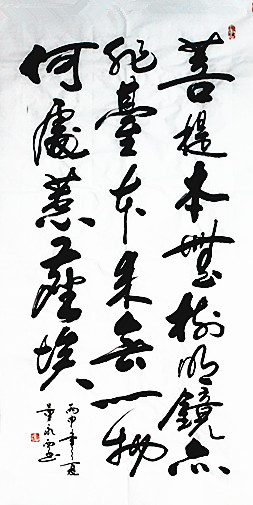 菩提本無樹明鏡亦
非臺本来無一物
何處惹塵埃
丙申年之夏